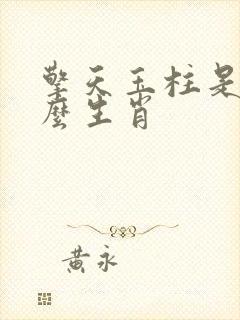 擎天玉柱是
麼生肖
黃永